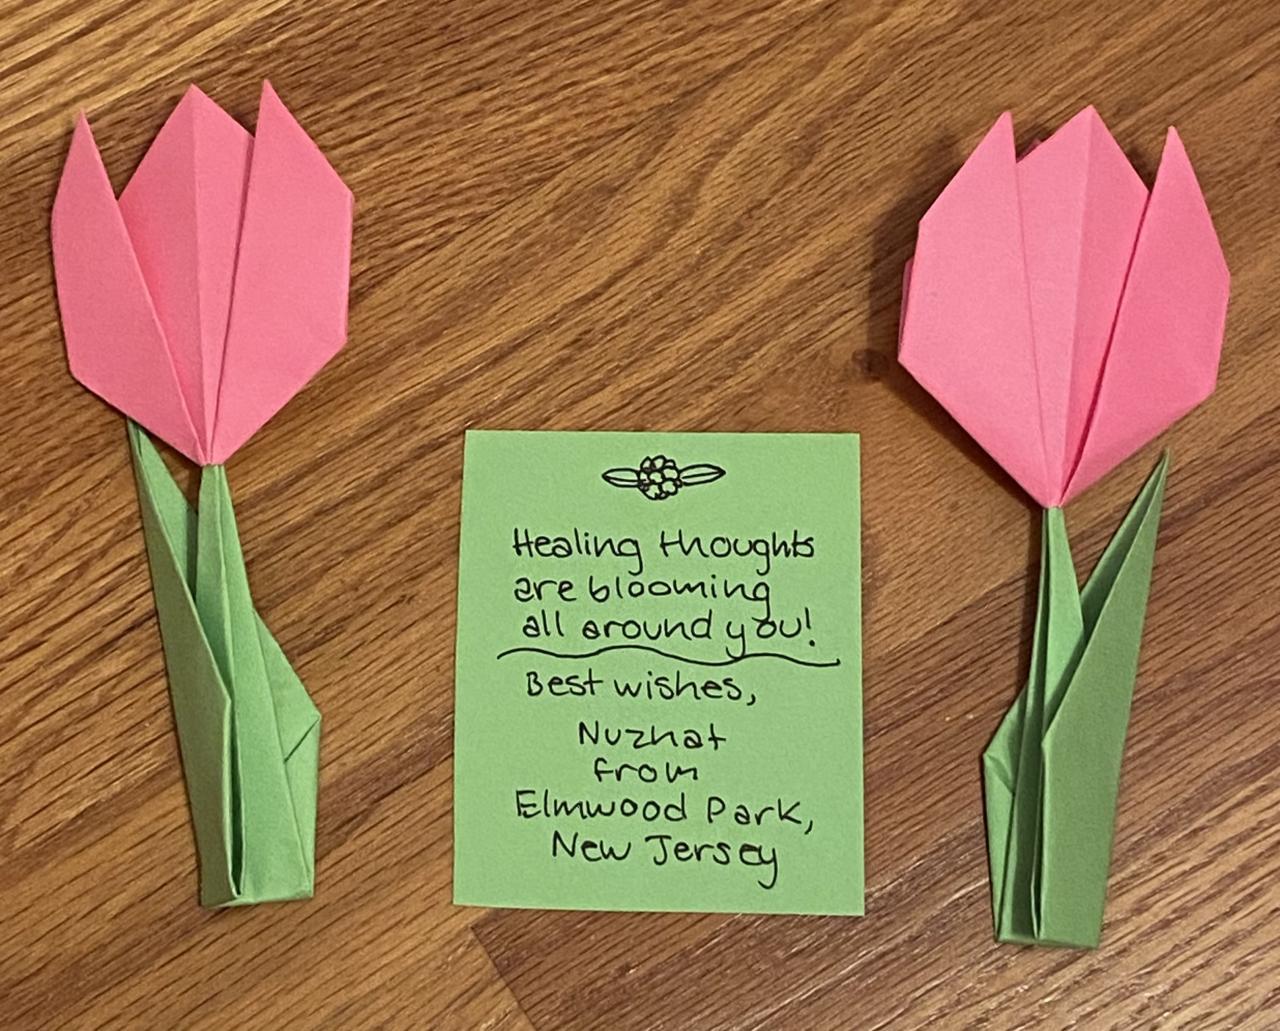 Healing thoughts
are blooming
all around you!
Best wishes,
Nuzhat
from
Elmwood Park,
New Jersey